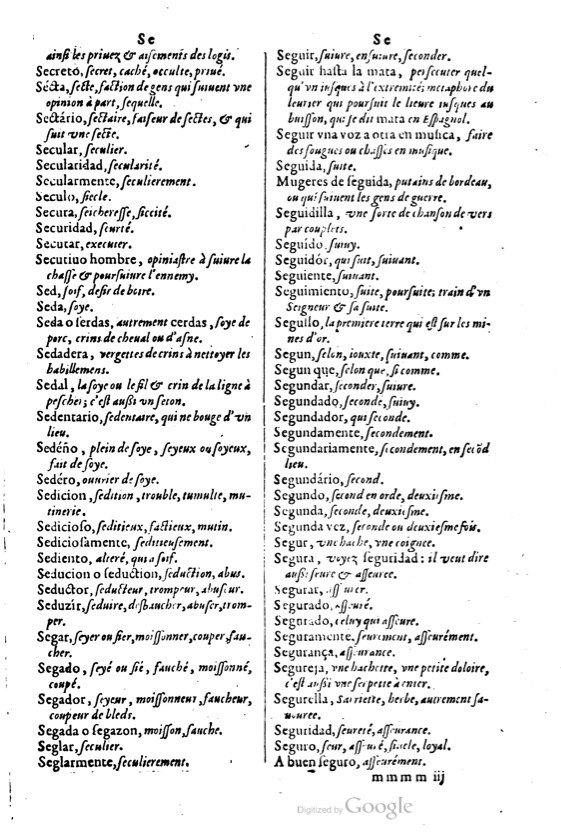 Se
ainſi les priuez & aiſements des logis.
Secreto, ſecret, caché, occulte, priué.
Sécta, ſecte, faction de gens qui ſuiuent vne
opinion à part, ſequelle.
Sectário, ſectaire, faiſeur de ſectes, & qui
ſuit vne ſecte.
Secular, ſeculier.
Secularidad, ſecularité.
Secularmente, ſeculierement.
Seculo, ſiecle.
Secura, ſeichereſſe, ſiccité.
Securidad, ſeurté.
Secutar, executer.
Secutiuo hombre, opiniaſtre à ſuiure la
chaſſe & pourſuiure l'ennemy.
Sed, ſoif, deſir de boire.
Seda, ſoye.
Seda o ſerdas, autrement cerdas, ſoye de
porc, crins de cheual ou d'aſne.
Sedadera, vergettes de crins à nettoyer les
habillemens.
Sedal, la ſoye ou le fil & crin de la ligne à
peſcher; c'eſt auſſi vn ſeton.
Sedentario, ſedentaire, qui ne bouge d'vn
lieu.
Sedéño, plein de ſoye, ſeyeux ou ſoyeux,
fait de ſoye.
Sedéro, ouurier de ſoye.
Sedicion, ſedition, trouble, tumulte, mu-
tinerie.
Sedicioſo, ſeditieux, factieux, mutin.
Sedicioſamente, ſeditieuſement.
Sediento, alteré, qui a ſoif.
Seducion o ſeduction, ſeduction, abus.
Seductor, ſeducteur, trompeur, abuſeur.
Seduzir, ſeduire, desbaucher, abuſer, trom-
per.
Segar, ſeyer ou ſier, moiſſonner, couper, fau-
cher.
Segado, ſeyé ou ſié, fauché, moiſſonné,
coupé.
Segador, ſeyeur, moiſſonneur, faucheur,
coupeur de bleds.
Segada o ſegazon, moiſſon, fauche.
Seglar, ſeculier.
Seglarmente, ſeculierement.
Se
Seguir, ſuiure, enſuiure, ſeconder.
Seguir haſta la mata, perſecuter quel-
qu'vn iuſques à l'extremité; metaphore du
leurier qui pourſuit le lieure iuſques au
buiſſon, qui ſe dit mata en Eſpagnol.
Seguir vna voz a otra en muſica, faire
des fougues ou chaſſes en muſique.
Seguida, ſuite.
Mugeres de ſeguida, putains de bordeau,
ou qui ſuiuent les gens de guerre.
Seguidilla, vne ſorte de chanſon de vers
par couplets.
Seguído ſuiuy.
Seguidór, qui ſuit, ſuiuant.
Seguiente, ſuiuant.
Seguimiento, ſuite, pourſuite; train d'vn
Seigneur & ſa ſuite.
Segullo, la premiere terre qui eſt ſur les mi-
nes d'or.
Segun, ſelon, iouxte, ſuiuant, comme.
Segun que, ſelon que, ſi comme.
Segundar, ſeconder, ſuiure.
Segundado, ſeconde, ſuiuy.
Segundador, qui ſeconde.
Segundamente, ſecondement.
Segundariamente, ſecondement, en ſecõd
lieu.
Segundário, ſecond.
Segundo, ſecond en orde, deuxieſme.
Segunda, ſeconde, deuxieſme.
Segunda vez, ſeconde ou deuxieſme fois.
Segur, vne hache, vne coignee.
Segura, voyez ſeguridad: il veut dire
auſſi ſeure & aſſeuree.
Segurar, aſſeurer.
Segurado, aſſeuré.
Segurado, celuy qui aſſeure.
Seguramente, ſeurement, aſſeurément.
Segurança, aſſeurance.
Segureja, vne hachette, vne petite doloire,
c'eſt auſſi vne ſerpette à
Segurella, Sarriette, herbe, autrement ſa-
uouree.
Seguridad, ſeureté, aſſeurance.
Seguro, ſeur, aſſeuré, fidele, loyal.
A buen ſeguro, aſſeurément.
mmmm iij
Digitized by Google